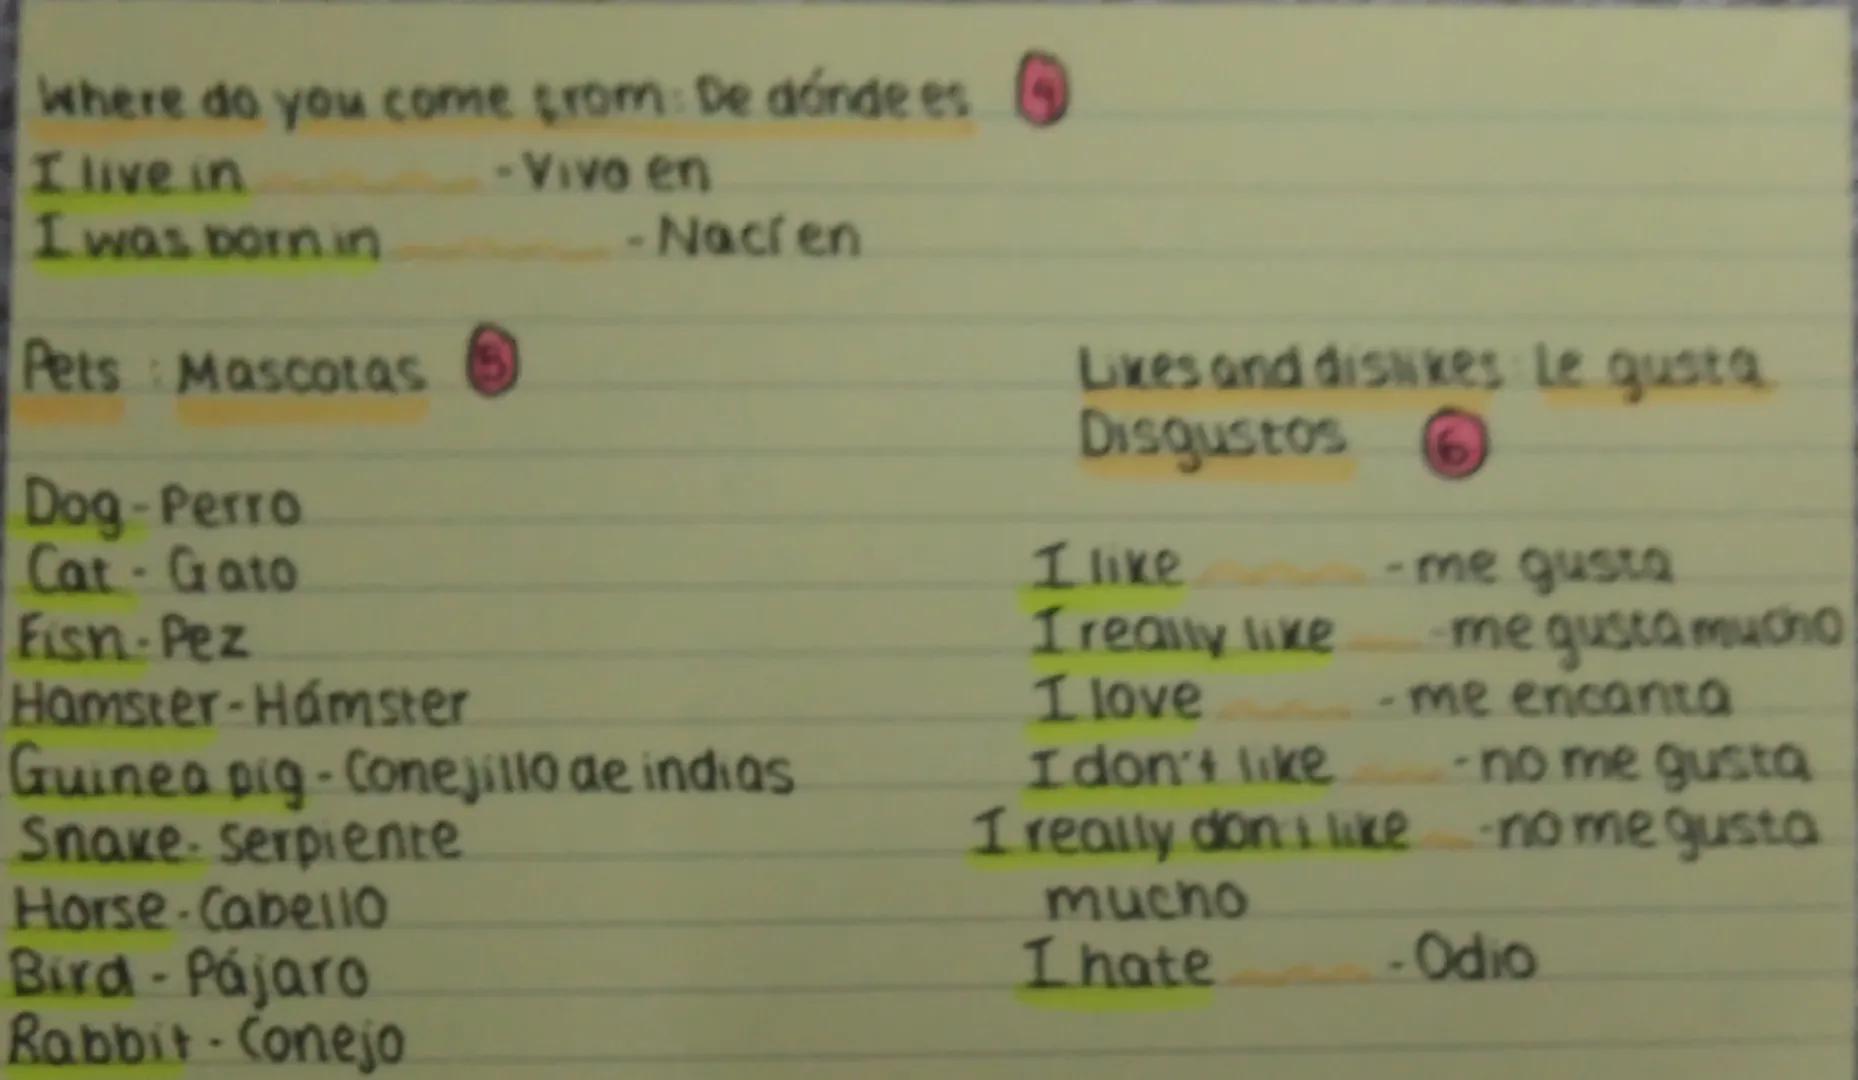 Where do you come from: De dónde es 4
I live in - Vivo en
I was born in - Nací en
Pets : Mascotas 5
Dog - Perro
Cat - Gato
Fish - Pez
Hamster - Hámster
Guinea pig - Conejillo de indias
Snake - Serpiente
Horse - Cabello
Bird - Pájaro
Rabbit - Conejo
Likes and dislikes: Le gusta
Disgustos 6
I like - me gusta
I really like - me gusta mucho
I love - me encanta
I don't like - no me gusta
I really don't like - no me gusta
mucho
I hate - Odio